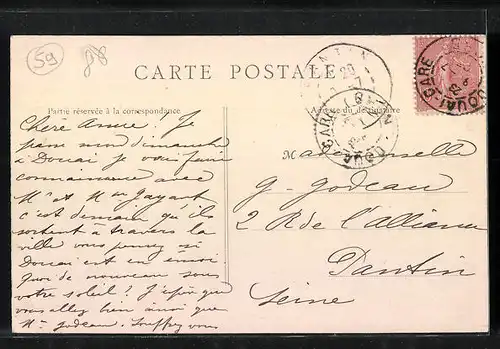 59
CARTE POSTALE
Partie réservée à la correspondance
Adresse du destinataire
DOUAI-GARE
DOUAI-GARE
PANTIN
Chere Amie. Je
passe mon dimanche
à Douai je vais faire
connaissance avec
Mr et Mme Gayant
c'est demain qu'ils
sortent à travers la
ville vous pensez si
Douai est en émoi.
Quoi de nouveau sous
votre soleil? J'espère que
vous allez bien ainsi que
Mme Godeau. Souffrez vous
Mademoiselle
G. Godeau
2 Rue de l'Alliance
Pantin
Seine